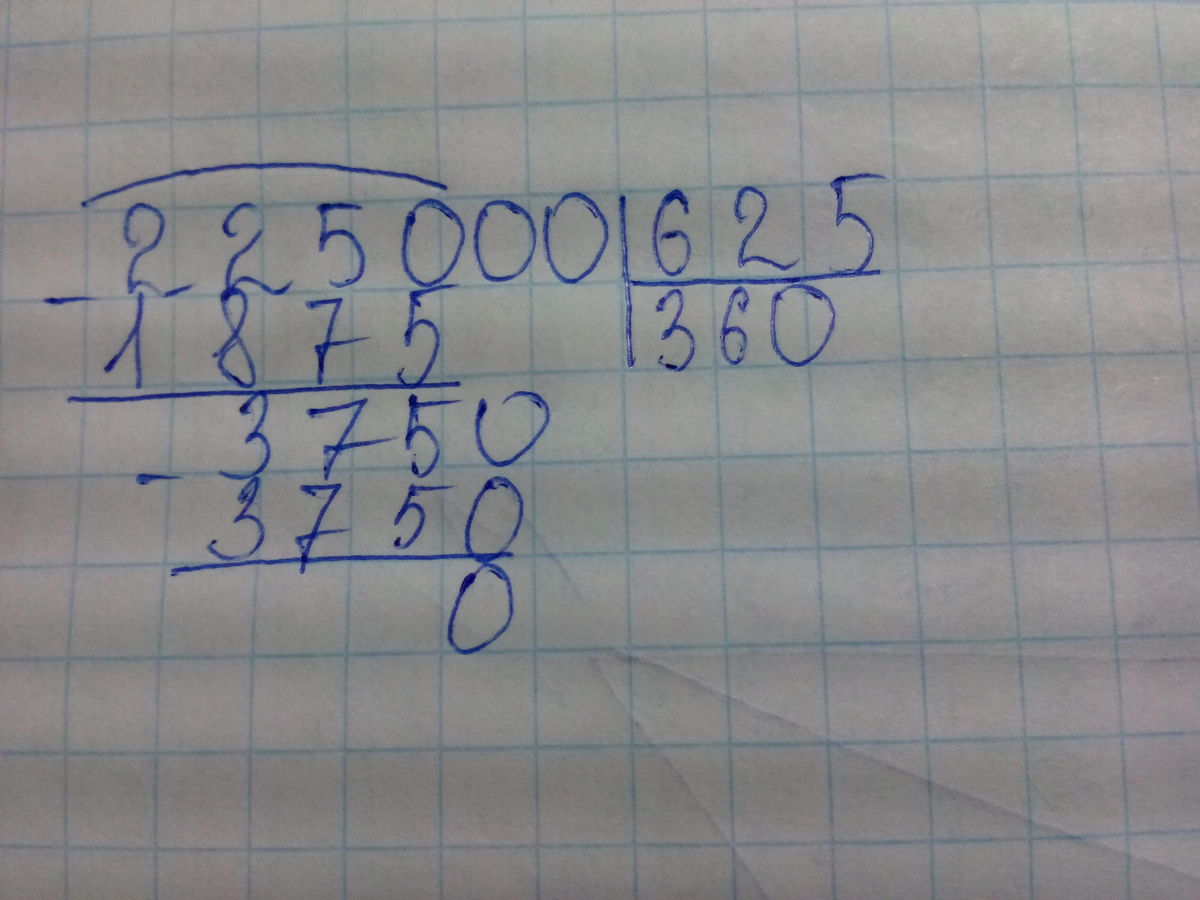 225000 625
- 1875 360
3750
- 3750
0